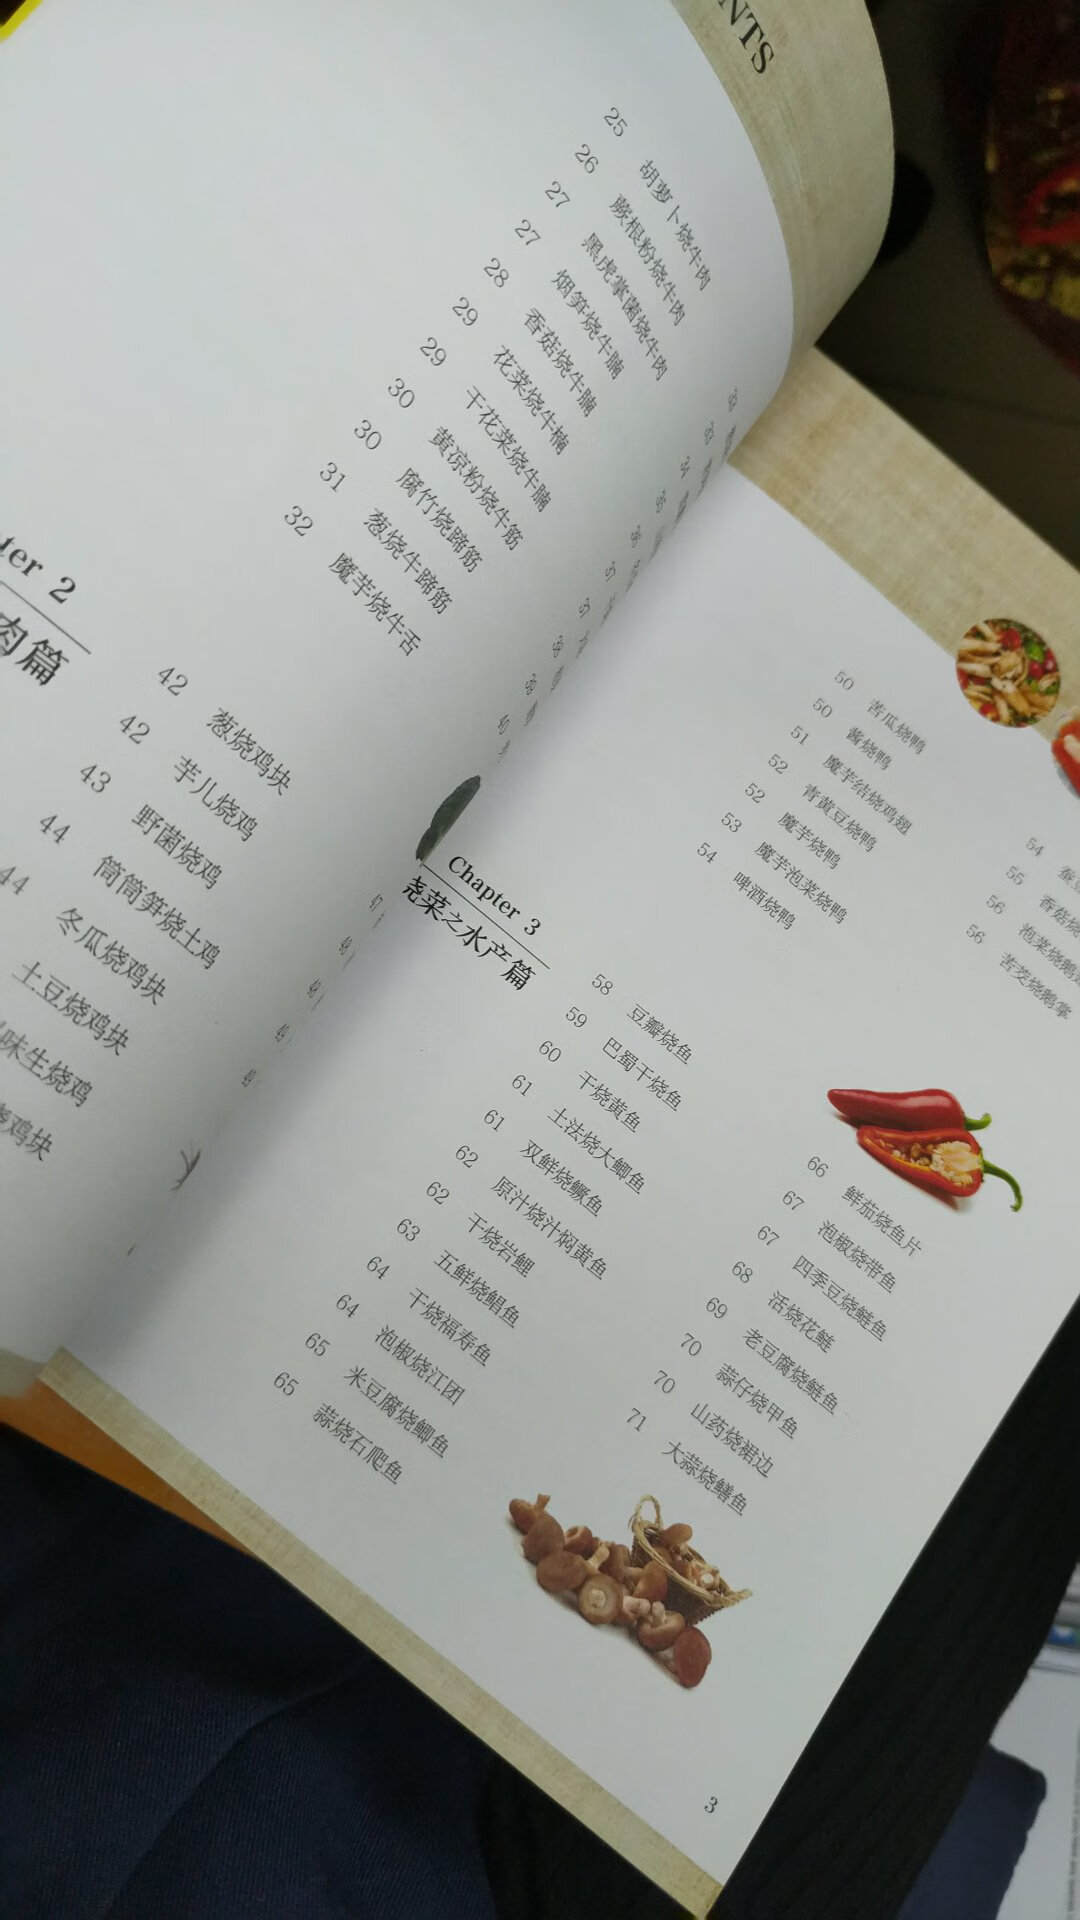 NTS
25 胡萝卜烧牛肉
26 蕨根粉烧牛肉
27 黑虎掌菌烧牛肉
27 烟笋烧牛腩
28 香菇烧牛腩
29 花菜烧牛楠
29 干花菜烧牛腩
30 黄凉粉烧牛筋
30 腐竹烧蹄筋
31 葱烧牛蹄筋
32 魔芋烧牛舌
ter 2
肉篇
42 葱烧鸡块
42 芋儿烧鸡
43 野菌烧鸡
44 筒筒笋烧土鸡
44 冬瓜烧鸡块
土豆烧鸡块
味生烧鸡
烧鸡块
47
48
48
49
49
50 苦瓜烧鸭
50 酱烧鸭
51 魔芋结烧鸡翅
52 青黄豆烧鸭
52 魔芋烧鸭
53 魔芋泡菜烧鸭
54 啤酒烧鸭
54
55 香菇烧
56 泡菜烧鹅
56 苦茭烧鹅掌
Chapter 3
烧菜之水产篇
58 豆瓣烧鱼
59 巴蜀干烧鱼
60 干烧黄鱼
61 土法烧大鲫鱼
61 双鲜烧鳜鱼
62 原汁烧汁焖黄鱼
62 干烧岩鲤
63 五鲜烧鲳鱼
64 干烧福寿鱼
64 泡椒烧江团
65 米豆腐烧鲫鱼
65 蒜烧石爬鱼
66 鲜茄烧鱼片
67 泡椒烧带鱼
67 四季豆烧鲢鱼
68 活烧花鲢
69 老豆腐烧鲢鱼
70 蒜仔烧甲鱼
70 山药烧裙边
71 大蒜烧鳝鱼
3